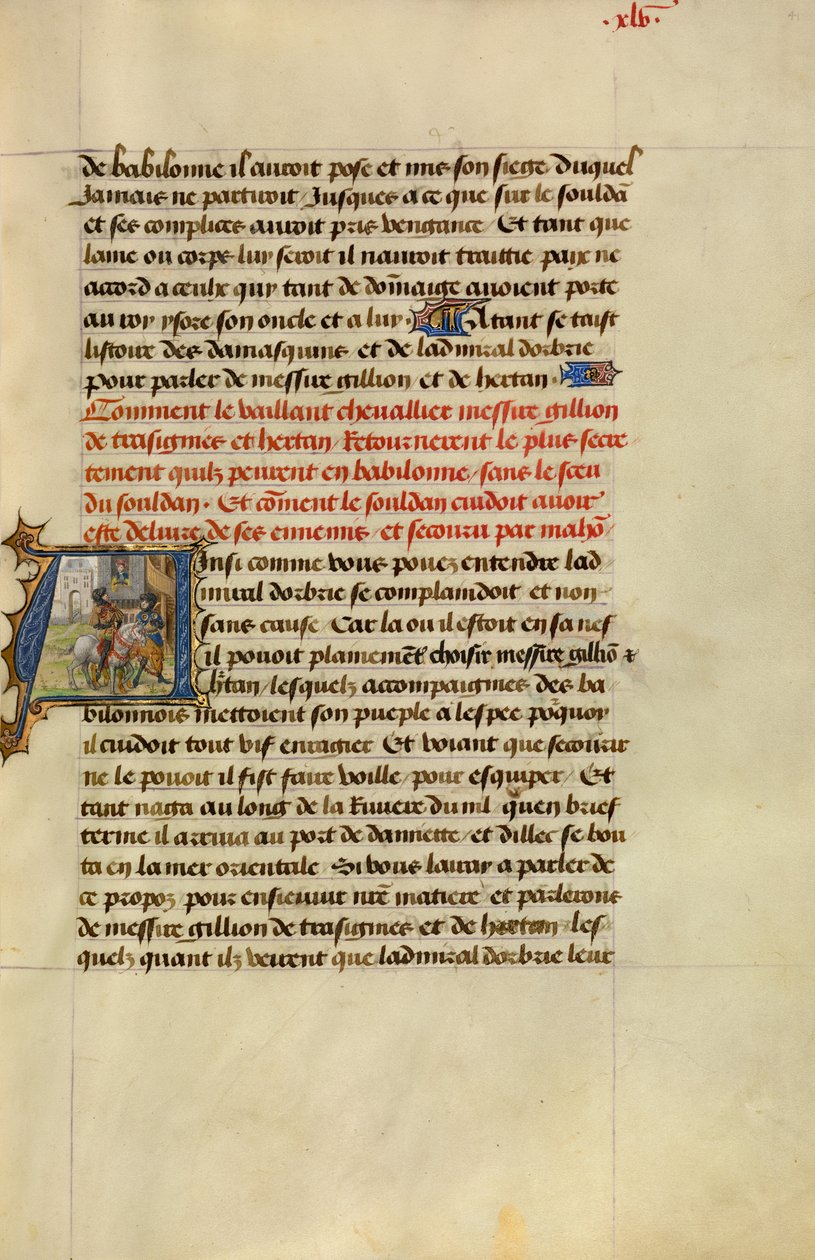 .xlv.
41
de babilonne il auroit pose et mis son siege Duquel
Jamais ne partiroit / Jusques a ce que sur le souldã
et ses complices auroit pris vengance / Et tant que
lame ou corps luy seroit il nauroit traittie paix ne
accord a ceulx quy tant de dom̃aige auoient porte
au roy ysore son oncle et a luy · Atant se taist
listoire des damasquins et de ladmiral dorbrie
pour parler de messire gillion et de hertan ·
Comment le vaillant chevallier messire gillion
de trasignies et hertan / Retournerent le plus secre
tement quilz peurent en babilonne / sans le sceu
du souldan · Et cõment le souldan cuidoit auoir
este deliure de ses ennemis / et secouru par mahõ /
Ainsi comme vous pouez entendre lad
miral dorbrie se complaindoit et non
sans cause / Car la ou il estoit en sa nef
il pouoit plainemẽt choisir messire gilliõ &
h̃tan / lesquelz accompaignies des ba
bilonnois mettoient son pueple a lespee poʳquoy
il cuidoit tout vif enragier Et voiant que secourir
ne le pouoit il fist faire voille / pour esquiper / Et
tant naga au long de la Riuiere du nil / quen brief
terme il arriua au port de damiette / et dillec se bou
ta en la mer orientale / Si vous lairay a parler de
ce propoz / pour ensieuuir nr̃e matiere et parlerons
de messire gillion de trasignies et de hertan / les
quelz quant ilz veirent que ladmiral dorbrie leur